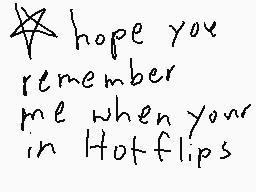 hope you
remember
me when your
in Hotflips